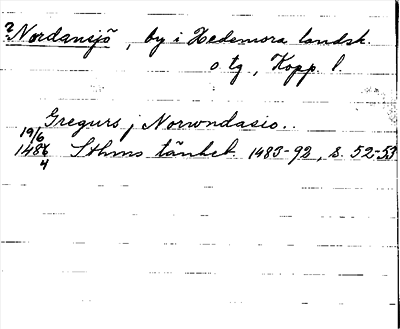 ? Nordansjö, by i Hedemora landsk.
o tg, Kopp. l
Gregurs j Norwndasio..
19/6
1484 Sthms tänkeb. 1483-92, s. 52-53